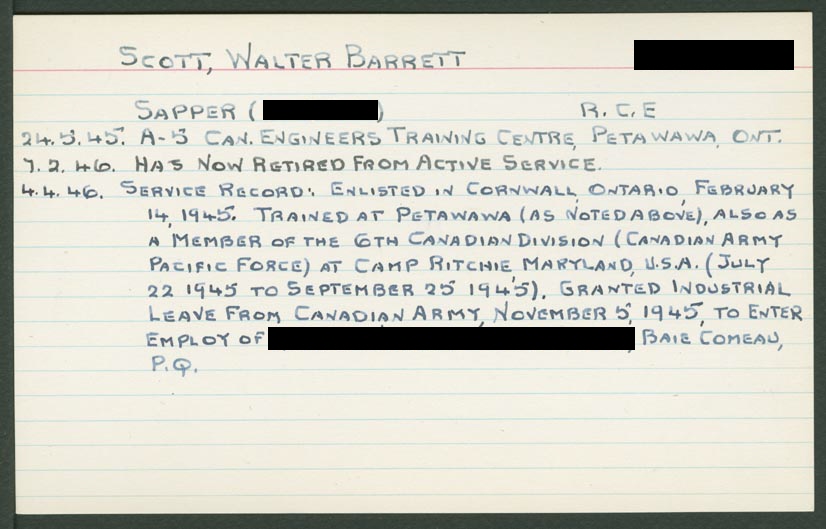 SCOTT, WALTER BARRETT
SAPPER ( ) R.C.E
24.5.45. A-5 CAN. ENGINEERS TRAINING CENTRE, PETAWAWA, ONT.
7.2.46. HAS NOW RETIRED FROM ACTIVE SERVICE.
4.4.46. SERVICE RECORD: ENLISTED IN CORNWALL, ONTARIO, FEBRUARY
14, 1945. TRAINED AT PETAWAWA (AS NOTED ABOVE), ALSO AS
A MEMBER OF THE 6TH CANADIAN DIVISION (CANADIAN ARMY
PACIFIC FORCE) AT CAMP RITCHIE, MARYLAND, U.S.A. (JULY
22 1945 TO SEPTEMBER 25 1945). GRANTED INDUSTRIAL
LEAVE FROM CANADIAN ARMY, NOVEMBER 5, 1945, TO ENTER
EMPLOY OF , BAIE COMEAU,
P.Q.